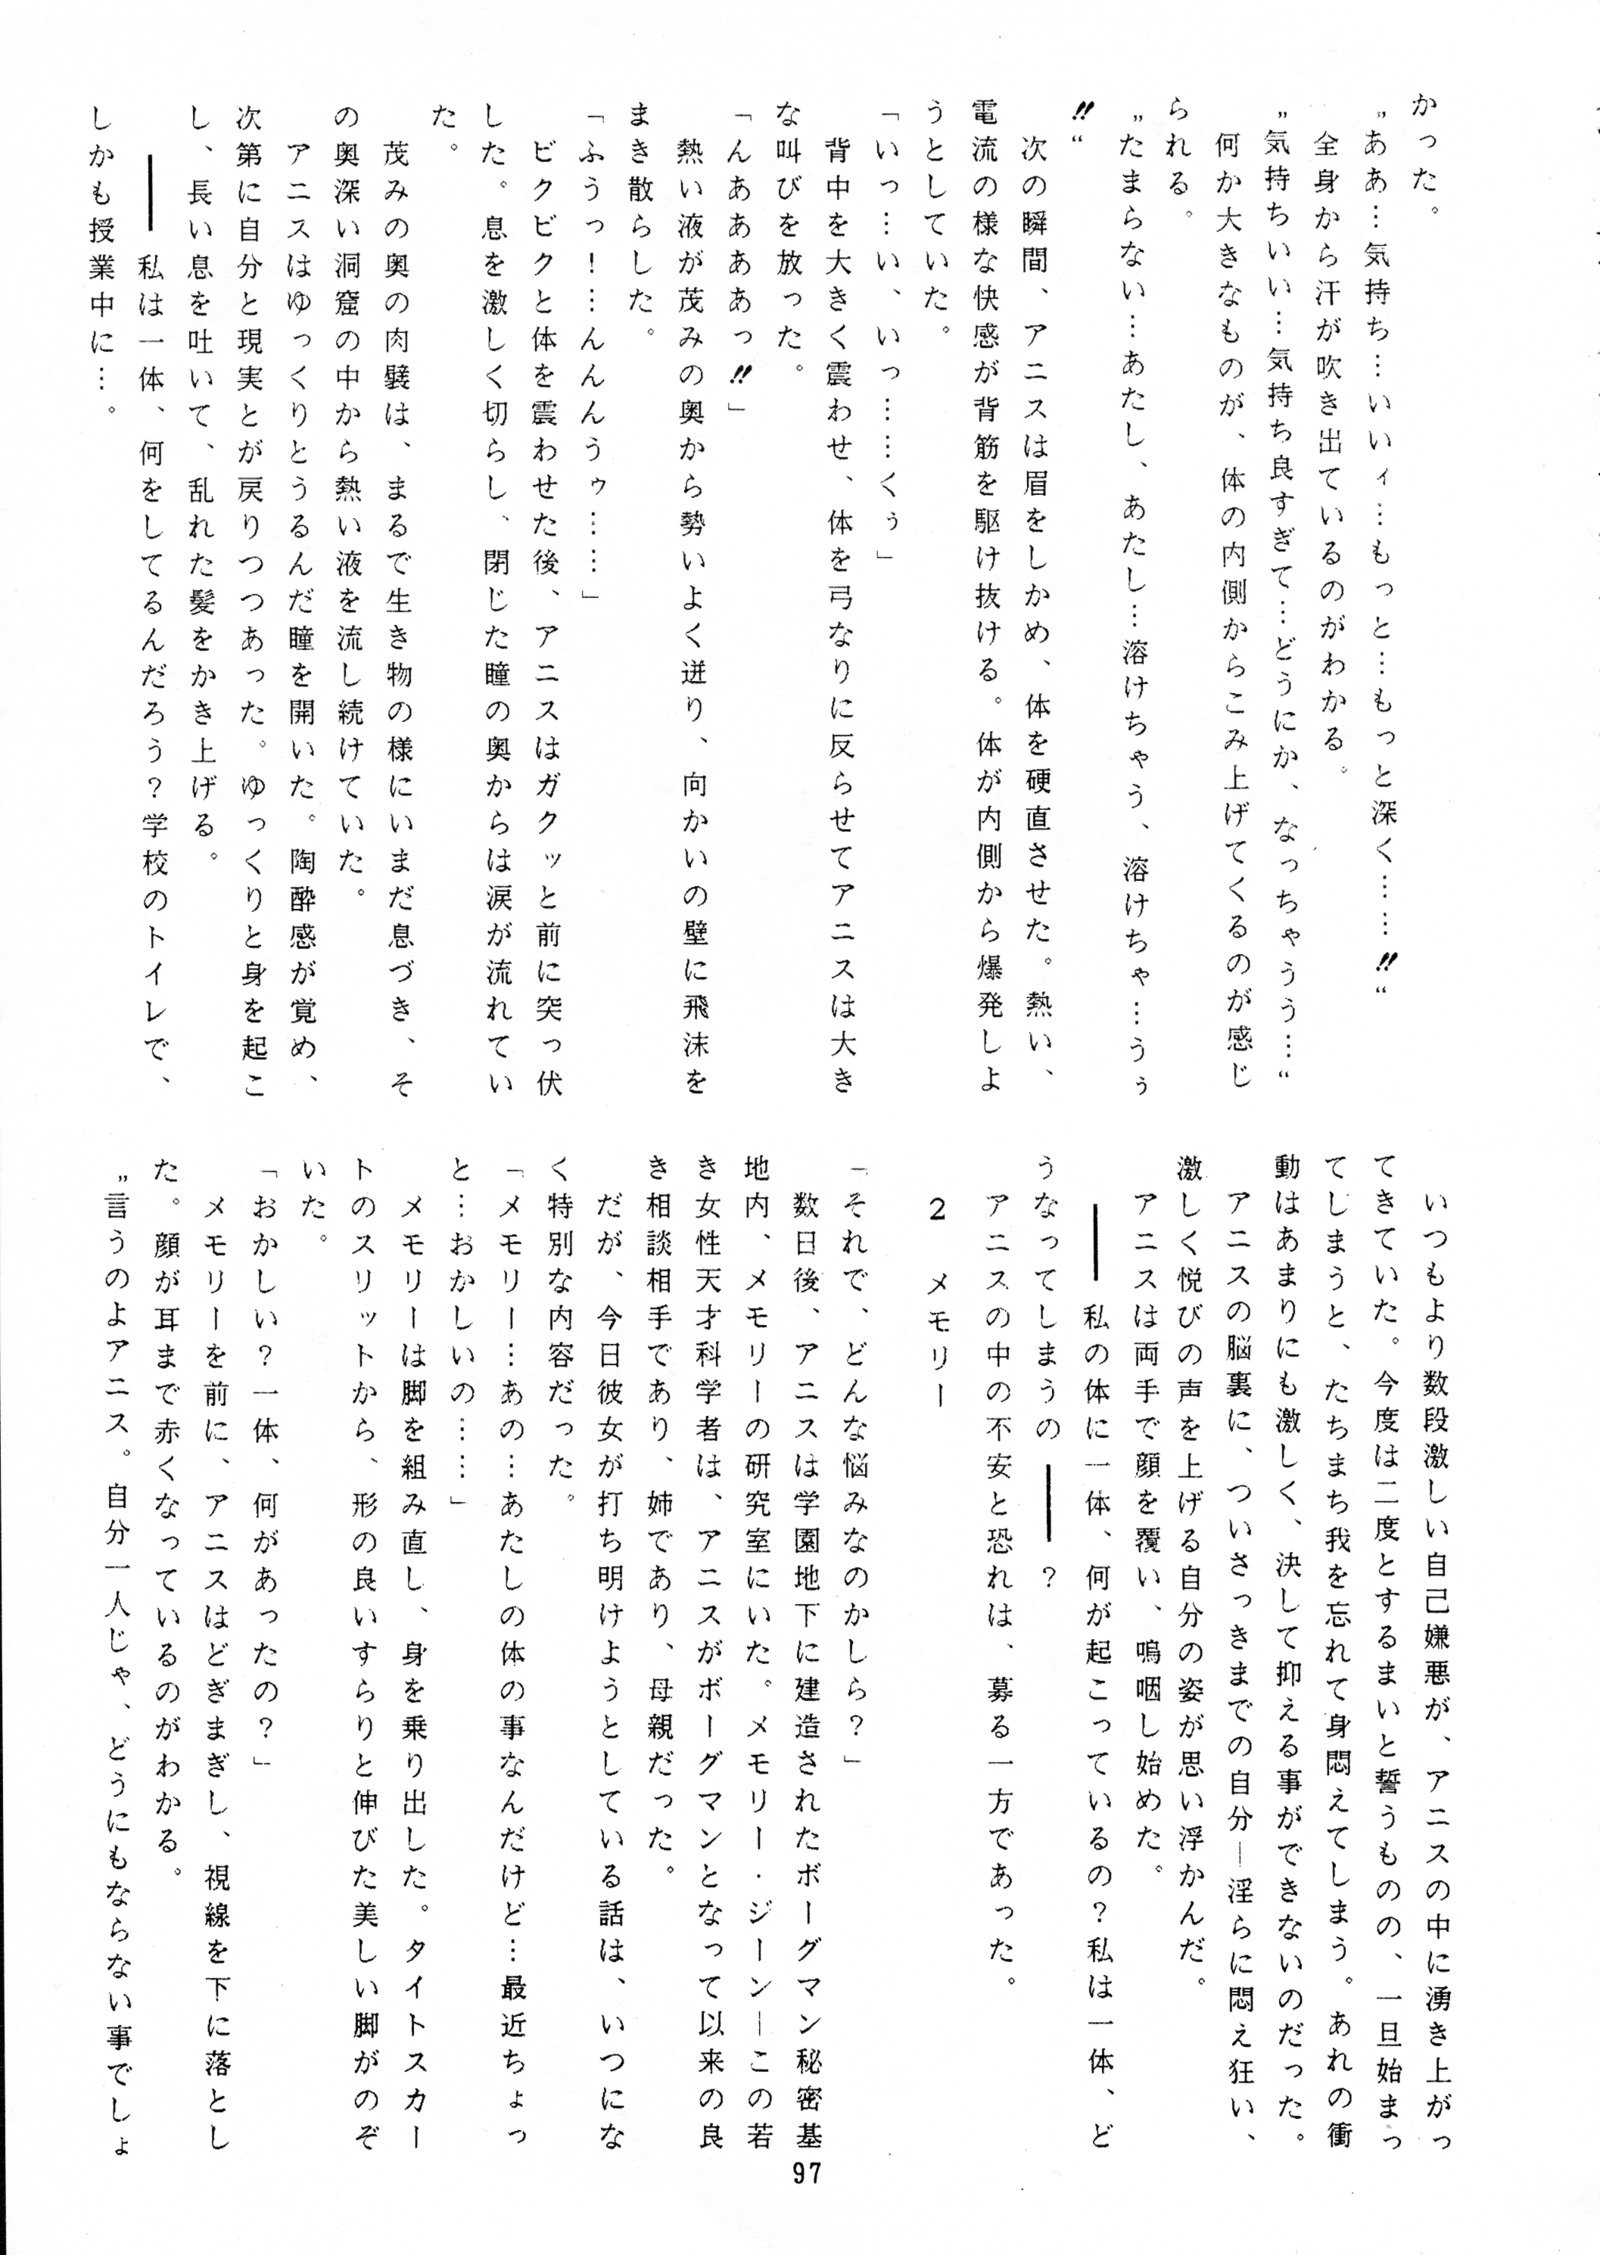 かった。
〟ああ…気持ち…いいィ…もっと…もっと深く……!!〝
全身から汗が吹き出ているのがわかる。
〟気持ちいい…気持ち良すぎて…どうにか、なっちゃうう…〝
何か大きなものが、体の内側からこみ上げてくるのが感じ
られる。
〟たまらない…あたし、あたし…溶けちゃう、溶けちゃ…うぅ
!!〝
次の瞬間、アニスは眉をしかめ、体を硬直させた。熱い、
電流の様な快感が背筋を駆け抜ける。体が内側から爆発しよ
うとしていた。
「いっ…い、いっ……くぅ」
背中を大きく震わせ、体を弓なりに反らせてアニスは大き
な叫びを放った。
「んあああっ!!」
熱い液が茂みの奥から勢いよく迸り、向かいの壁に飛沫を
まき散らした。
「ふうっ!…んんんうゥ……」
ビクビクと体を震わせた後、アニスはガクッと前に突っ伏
した。息を激しく切らし、閉じた瞳の奥からは涙が流れてい
た。
茂みの奥の肉襞は、まるで生き物の様にいまだ息づき、そ
の奥深い洞窟の中から熱い液を流し続けていた。
アニスはゆっくりとうるんだ瞳を開いた。陶酔感が覚め、
次第に自分と現実とが戻りつつあった。ゆっくりと身を起こ
し、長い息を吐いて、乱れた髪をかき上げる。
――私は一体、何をしてるんだろう?学校のトイレで、
しかも授業中に…。
いつもより数段激しい自己嫌悪が、アニスの中に湧き上がっ
てきていた。今度は二度とするまいと誓うものの、一旦始まっ
てしまうと、たちまち我を忘れて身悶えてしまう。あれの衝
動はあまりにも激しく、決して抑える事ができないのだった。
アニスの脳裏に、ついさっきまでの自分―淫らに悶え狂い、
激しく悦びの声を上げる自分の姿が思い浮かんだ。
アニスは両手で顔を覆い、嗚咽し始めた。
――私の体に一体、何が起こっているの?私は一体、ど
うなってしまうの――?
アニスの中の不安と恐れは、募る一方であった。
2　メモリー
「それで、どんな悩みなのかしら?」
数日後、アニスは学園地下に建造されたボーグマン秘密基
地内、メモリーの研究室にいた。メモリー・ジーン―この若
き女性天才科学者は、アニスがボーグマンとなって以来の良
き相談相手であり、姉であり、母親だった。
だが、今日彼女が打ち明けようとしている話は、いつにな
く特別な内容だった。
「メモリー…あの…あたしの体の事なんだけど…最近ちょっ
と…おかしいの……」
メモリーは脚を組み直し、身を乗り出した。タイトスカー
トのスリットから、形の良いすらりと伸びた美しい脚がのぞ
いた。
「おかしい?一体、何があったの?」
メモリーを前に、アニスはどぎまぎし、視線を下に落とし
た。顔が耳まで赤くなっているのがわかる。
〟言うのよアニス。自分一人じゃ、どうにもならない事でしょ
97